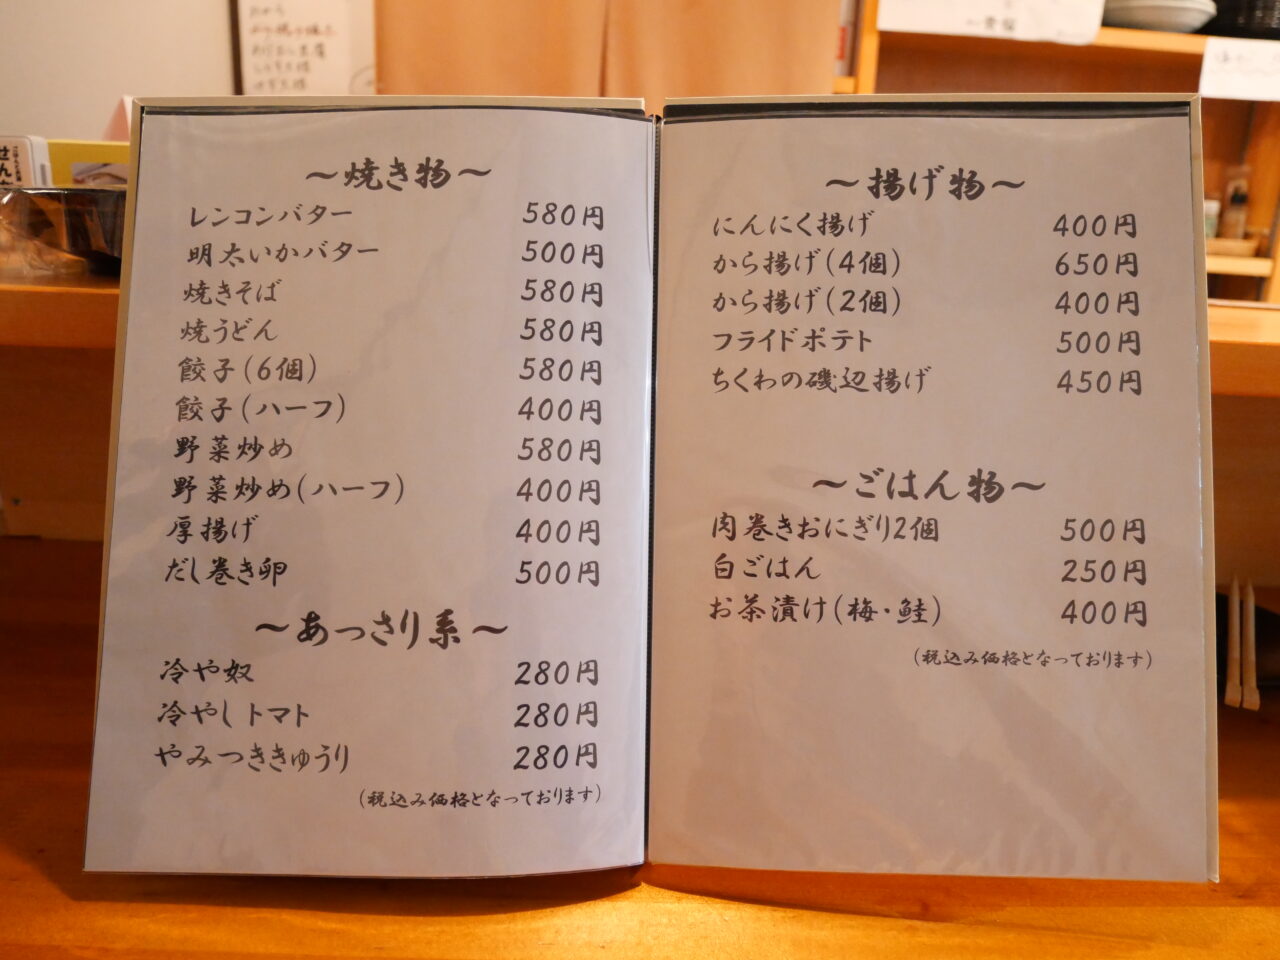 ～焼き物～
レンコンバター 580円
明太いかバター 500円
焼きそば 580円
焼うどん 580円
餃子(6個) 580円
餃子(ハーフ) 400円
野菜炒め 580円
野菜炒め(ハーフ) 400円
厚揚げ 400円
だし巻き卵 500円
～あっさり系～
冷や奴 280円
冷やしトマト 280円
やみつききゅうり 280円
(税込み価格となっております)
～揚げ物～
にんにく揚げ 400円
から揚げ(4個) 650円
から揚げ(2個) 400円
フライドポテト 500円
ちくわの磯辺揚げ 450円
～ごはん物～
肉巻きおにぎり2個 500円
白ごはん 250円
お茶漬け(梅・鮭) 400円
(税込み価格となっております)